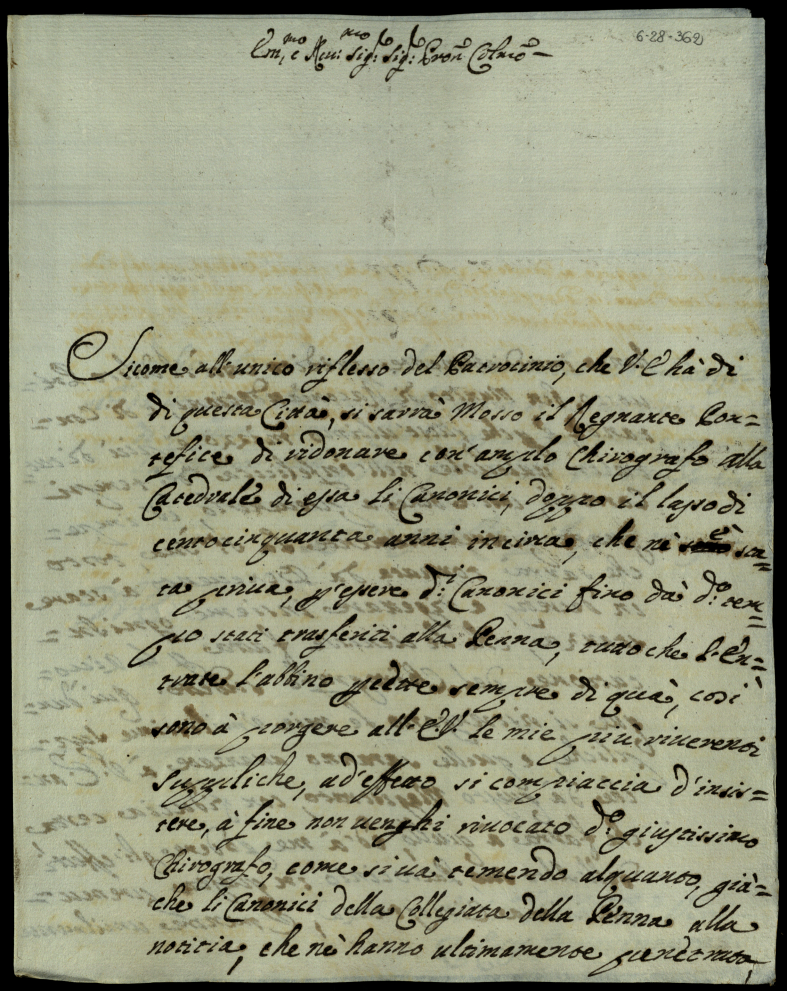 6-28-362
Em.mo e Rev.mo Sig.r Sig.r Pron. Colmo
Sicome all'unico riflesso del Patrocinio, che V. E. hà di
di questa Città, si sarrà mosso il Regnante Pon=
tefice di ridonare con'amplo Chirografo alla
Catedrale di essa li Canonici, doppo il lasso di
centocinquanta anni incirca, che nè è sta=
ta priva, p'essere d.i Canonici fino dà d.o tem=
po stati trasferiti alla Penna, tutto che l'En=
trate l'abbino perce sempre di quà, così
sono à porgere all'E.V. le mie più riverenti
suppliche, ad'effetto si compiaccia d'insis=
tere, à fine non venghi rivocato d.o giustissimo
Chirografo, come si và temendo alquanto, già=
che li Canonici della Collegiata della Penna alla
notitia, che nè hanno ultimamente penetrata,